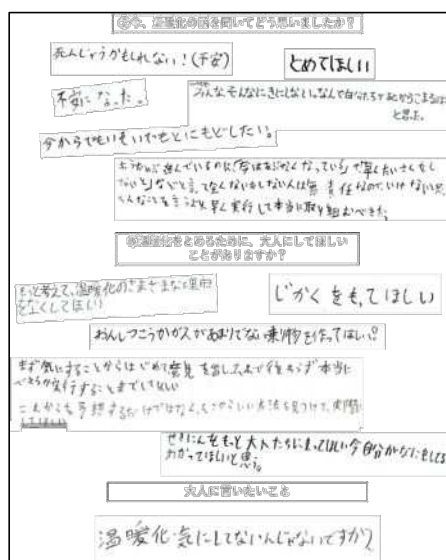 今、温暖化の話を聞いてどう思いましたか?
死んじゃうかもしれない!(不安)
とめてほしい
不安になった。
みんなそんなにきにしないとなんで自分たちが
と思った。
今からでもいそいでもとにもどしたい。
進んでいるのに「今はあぶなくなっている」「早くたいさくをし
ないと」などと言ってなくないかしない人は無責任なので、いけない
そんなことを言うより早く実行して本当に取り組むべきだ。
温暖化をとめるために、大人にして欲しい
ことがありますか?
もっと考えて、温暖化のさまざまな理由
をよくしてほしい
じかくをもってほしい
おんしつこうかガスがあまりでない乗り物を作ってほしい。
まず気にすることからはじめて意見を出して、本当に
実行することまでしてほしい
これからも予想するだけではなく、あたらしい方法を見つけて、実際に
してほしい
せきにんをもっと大人たちにもってほしい今自分がなにをしてる
わかってほしいと思う。
大人に言いたいこと
温暖化気にしてないんじゃないですか?